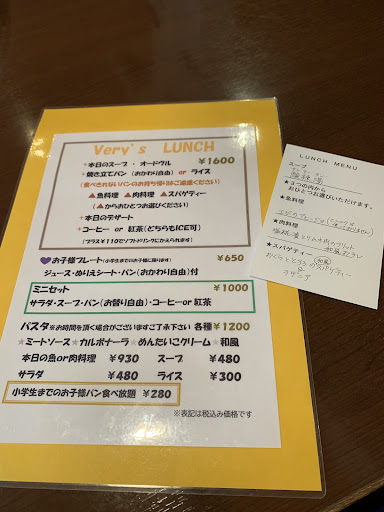 Very's LUNCH
+本日のスープ ・ オードブル ¥1600
+焼き立てパン (おかわり自由) or ライス
(食べきれないパンのお持ち帰りはご遠慮ください)
▲魚料理 ▲肉料理 ▲スパゲティー
(▲からおひとつお選びください)
+本日のデザート
+コーヒー or 紅茶 (どちらもICE可)
(プラス¥110でソフトドリンクにかえられます)
💜お子様プレート(小学生までのお子様に限ります) ¥650
ジュース・ぬりえシート・パン(おかわり自由)付
ミニセット ¥1000
サラダ・スープ・パン(お替り自由)・コーヒーor 紅茶
パスタ ※お時間を頂く場合がございますご了承下さい 各種¥1200
★ミートソース ★カルボナーラ ★めんたいこクリーム ★和風
本日の魚or肉料理 ¥930 スープ ¥480
サラダ ¥480 ライス ¥300
小学生までのお子様パン食べ放題 ¥280
※表記は税込み価格です
LUNCH MENU
スープ
★3つの内から
おひとつお選びいただけます。
★魚料理
★肉料理
★スパゲティー